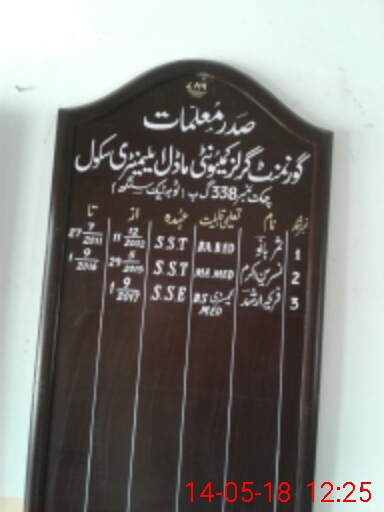 ۷۸۶
صدر معلمات
گورنمنٹ گرلز کمیونٹی ماڈل ایلیمنٹری سکول
چک نمبر 338 گ ب (ٹوبہ ٹیک سنگھ)
نمبر شمار نام تعلیمی قابلیت عہدہ از تا
1 بانو BA BED S.S.T 11 12/2002 27 7/2011
2 نسرین اکرم MA MED S.S.T 29 6/2015 1 9/2016
3 ارشد B.S کیمسٹری MED S.S.E 1 9/2017
14-05-18 12:25